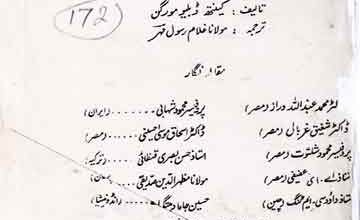 172
تالیف : کینتھ ڈبلیو مورگن
ترجمہ : مولانا غلام رسول مہر
مقالہ نگار
ڈاکٹر محمد عبداللہ دراز (مصر) پروفیسر محمود شہابی ....... (ایران)
ڈاکٹر شفیق غربال (مصر) ڈاکٹر اسحاق موسیٰ حسینی ...... (مصر)
پروفیسر محمود شلتوت (مصر) استاذ حسن بصری (ترکیہ)
اے۔ ای عفیفی (مصر) مولانا مظہر الدین صدیقی
استاذ داؤد سی۔ ایم ٹنگ (چین) حسین جاجا (انڈونیشیا)